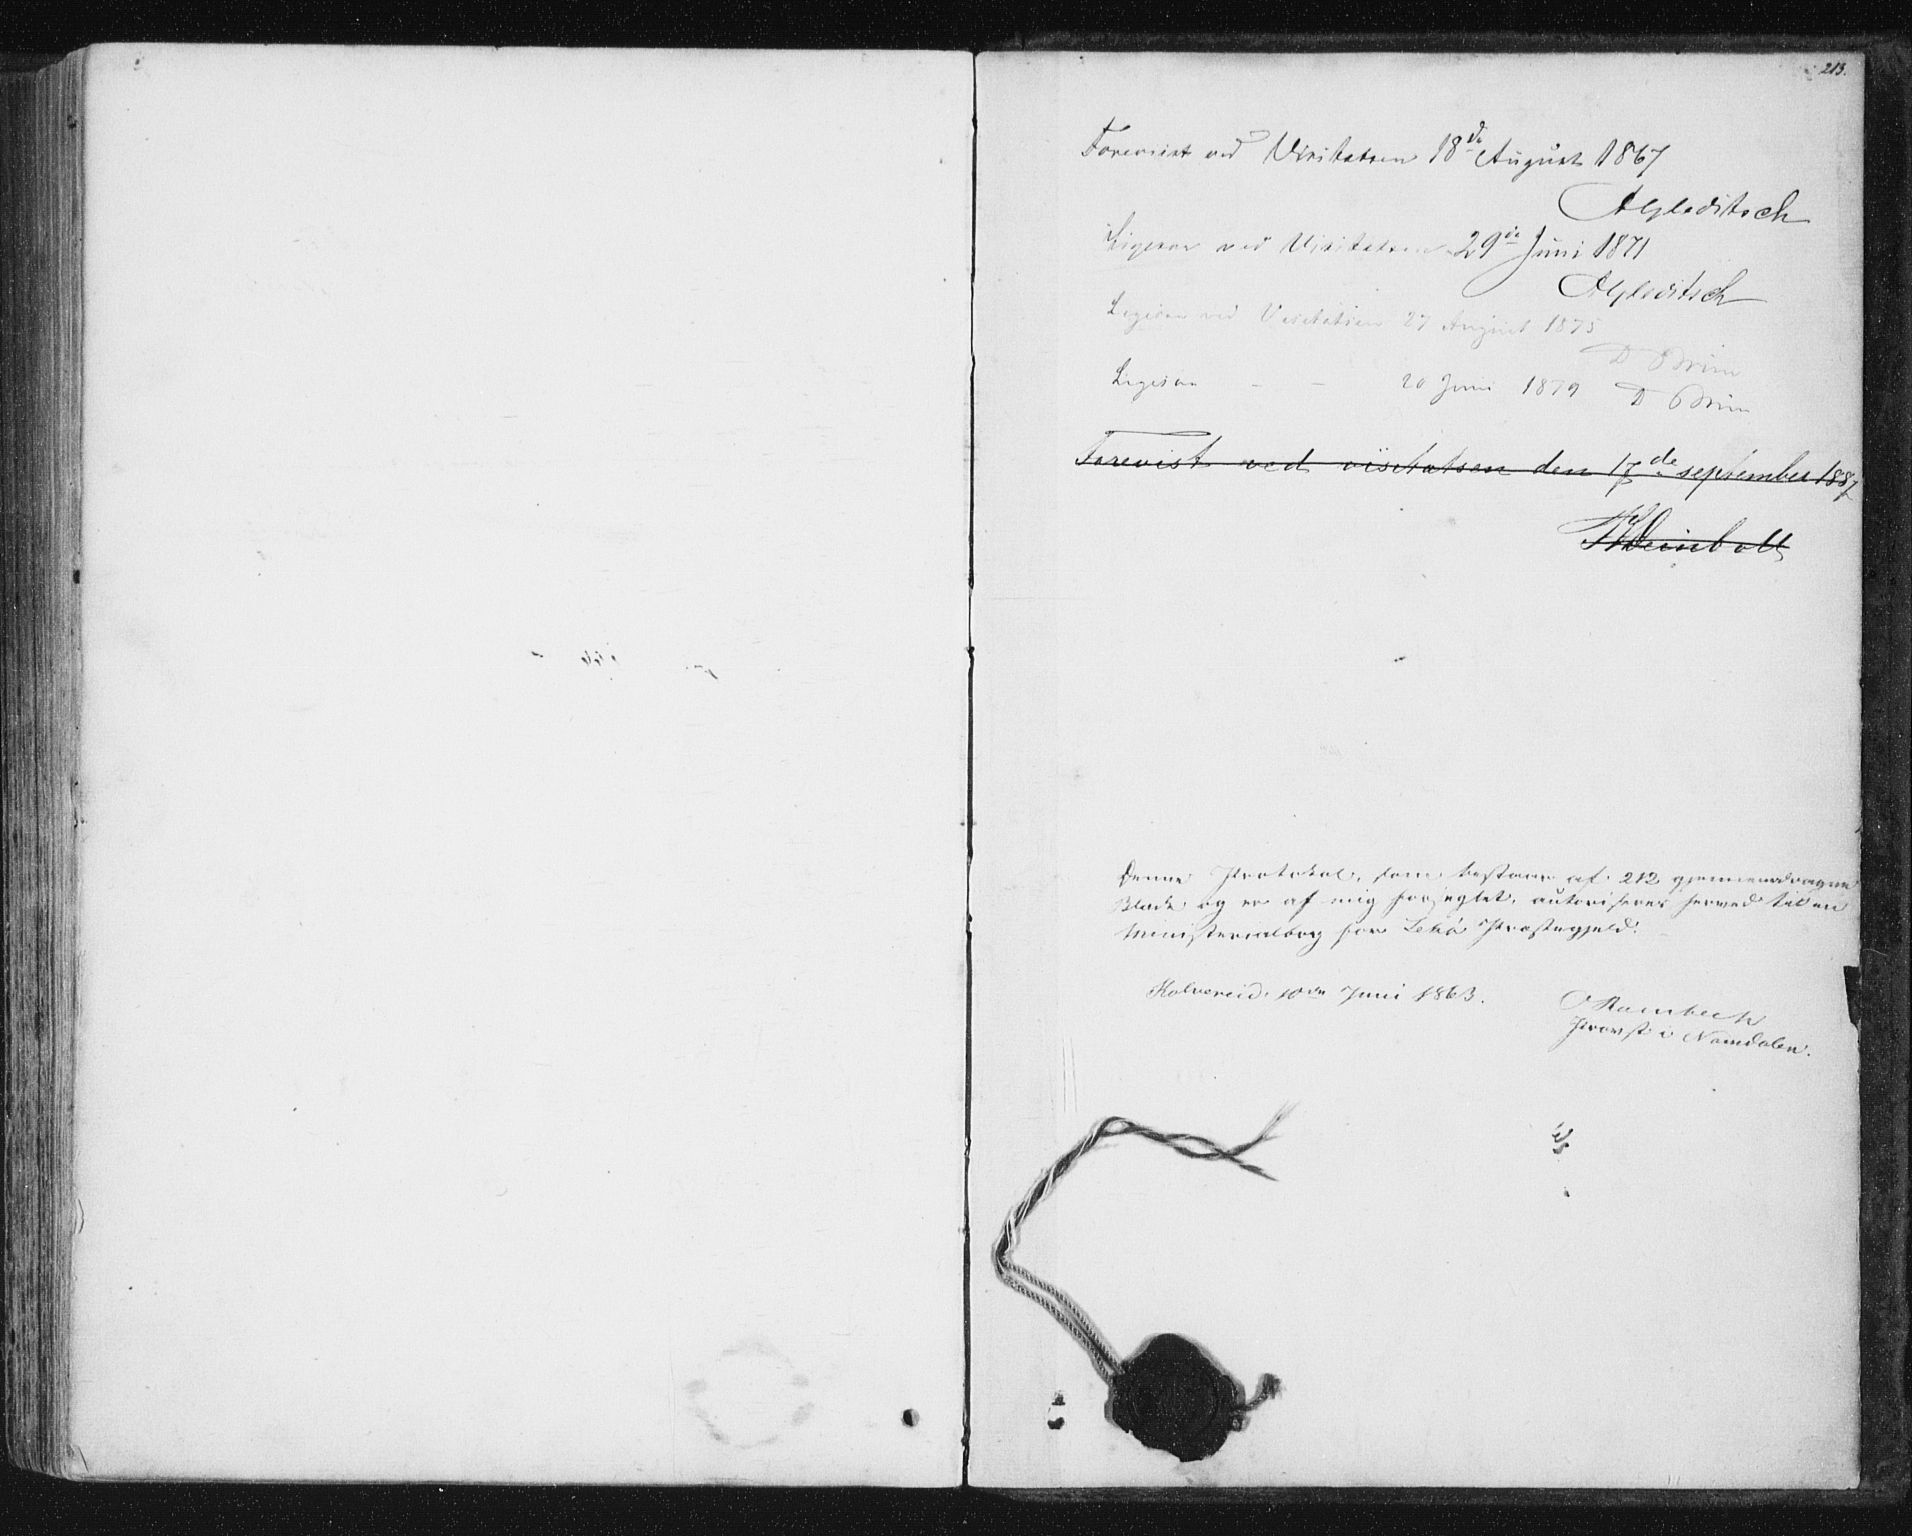 213.
Forevist ved Visitatsen 18de August 1867
AGleditsch
Ligesaa ved Visitatsen 29de Juni 1871
AGleditsch
Ligesaa ved Visitatsen 27 August 1875
Ligesaa - - 20 Juni 1879
Forevist ved visitatsen den 17de september 1887
Deinboll
Denne Protokol, som bestaar af 212 gjennemdragne
Blade og er af mig forseglet, autoriseres herved til en
Ministerialbog for Lekø Præstegjeld.
Kolvereid 10de Juni 1863.
Provst i Namdalen.